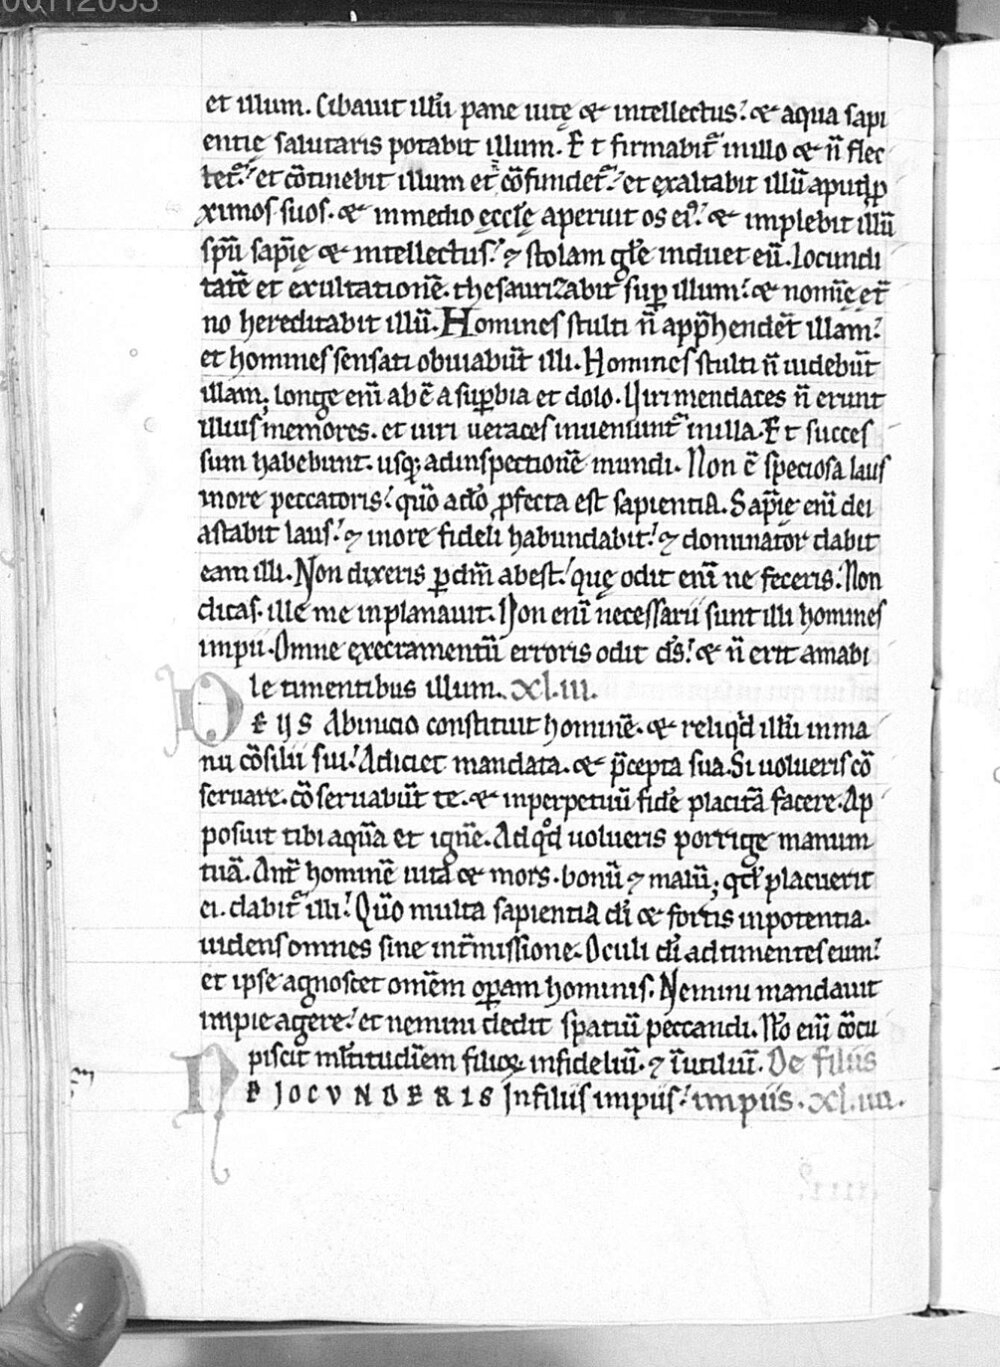 et illum. Cibauit illũ pane uitę ⁊ intellectus. ⁊ aqua sapi
entię salutaris potabit illum. Et firmabit᷑ inillo ⁊ ñ flec
tet᷑. et cõtinebit illum et cõfundet᷑. et exaltabit illũ apud ꝓ
ximos suos. ⁊ inmedio ęccłę aperuit os eiꝰ. ⁊ implebit illũ
spũ sapĩę ⁊ intellectus. ⁊ stolam głe induet eũ. Iocundi
tatẽ et exultationẽ. thesaurizabit sup̱ illum. ⁊ nomĩe et̃
no hereditabit illũ. Homines stulti ñ app̃hendẽt illam.
et homines sensati obuiabũt illi. Homines stulti ñ uidebũt
illam; longe enĩ abẽ a sup̱bia et dolo. Uiri mendaces ñ erunt
illius memores. et uiri ueraces inueniunt᷑ inilla. Et succes
sum habebunt. usq; adinspectionẽ mundi. Non ẽ speciosa laus
inore peccatoris. qũo ado ꝓfecta est sapientia. Sapĩę enĩ dei
astabit laus. ⁊ inore fideli habundabit. ⁊ dominator dabit
eam illi. Non dixeris p̱ dm̃ abest. quę odit enĩ ne feceris. Non
dicas. ille me inplanauit. Non enĩ necessarii sunt illi homines
impii. Omne exęcramentũ erroris odit dš. ⁊ ñ erit amabi
le timentibus illum. Xl.iii.
DEUS Abinicio constituit hominẽ. ⁊ reliqͥd illũ inma
nu cõsilii sui. Adiciet mandata. ⁊ p̃cepta sua. Si uolueris cõ
seruare. cõseruabũt te. ⁊ inperpetuũ fidẽ placitã facere. Ap
posuit tibi aquã et ignẽ. Ad qͦd uolueris porrige manum
tuã. Añt hominẽ uita ⁊ mors. bonũ ⁊ malũ; qd̵ placuerit
ei. dabit᷑ illi. Qũo multa sapientia dĩ ⁊ fortis inpotentia.
uidens omnes sine int̃missione. Oculi dĩ ad timentes eum.
et ipse agnoscet omẽm op̱am hominis. Nemini mandauit
impie agere. et nemini dedit spatiũ peccandi. Nõ enĩ cõcu
piscit ml̃titudĩem filioꝝ infideliũ. ⁊ ĩutiliũ. De filiis
NE IOCVNDERIS Infiliis impiis. impiis. Xl.iiii.